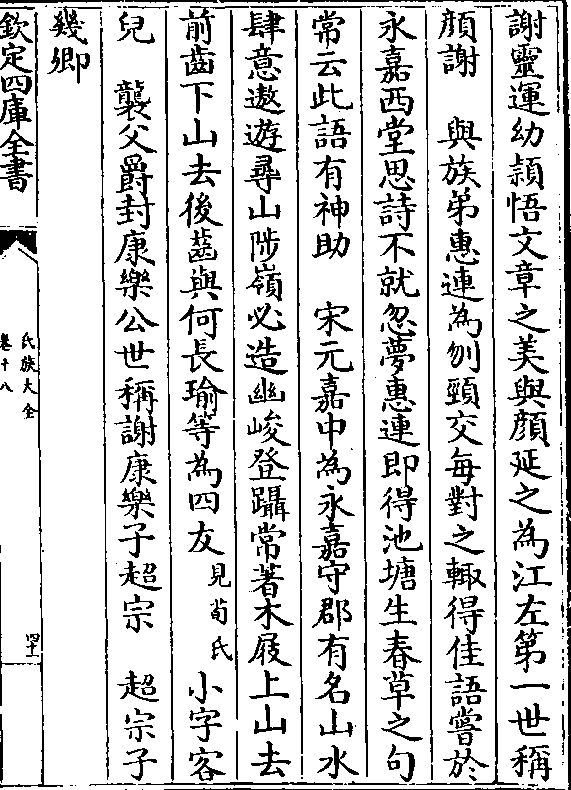 謝靈運幼頴悟文章之美與顔延之為江左第一世稱
顔謝　與族弟惠連為刎頸交每對之輙得佳語嘗於
永嘉西堂思詩不就忽夢惠連即得池塘生春草之句
常云此語有神助　宋元嘉中為永嘉守郡有名山水
肆意遨遊尋山陟嶺必造幽峻登躡常著木屐上山去
前齒下山去後齒與何長瑜等為四友見荀氏　小字客
兒　襲父爵封康樂公世稱謝康樂子超宗　超宗子
幾卿
欽定四庫全書
氏族大全
卷十八
四十一